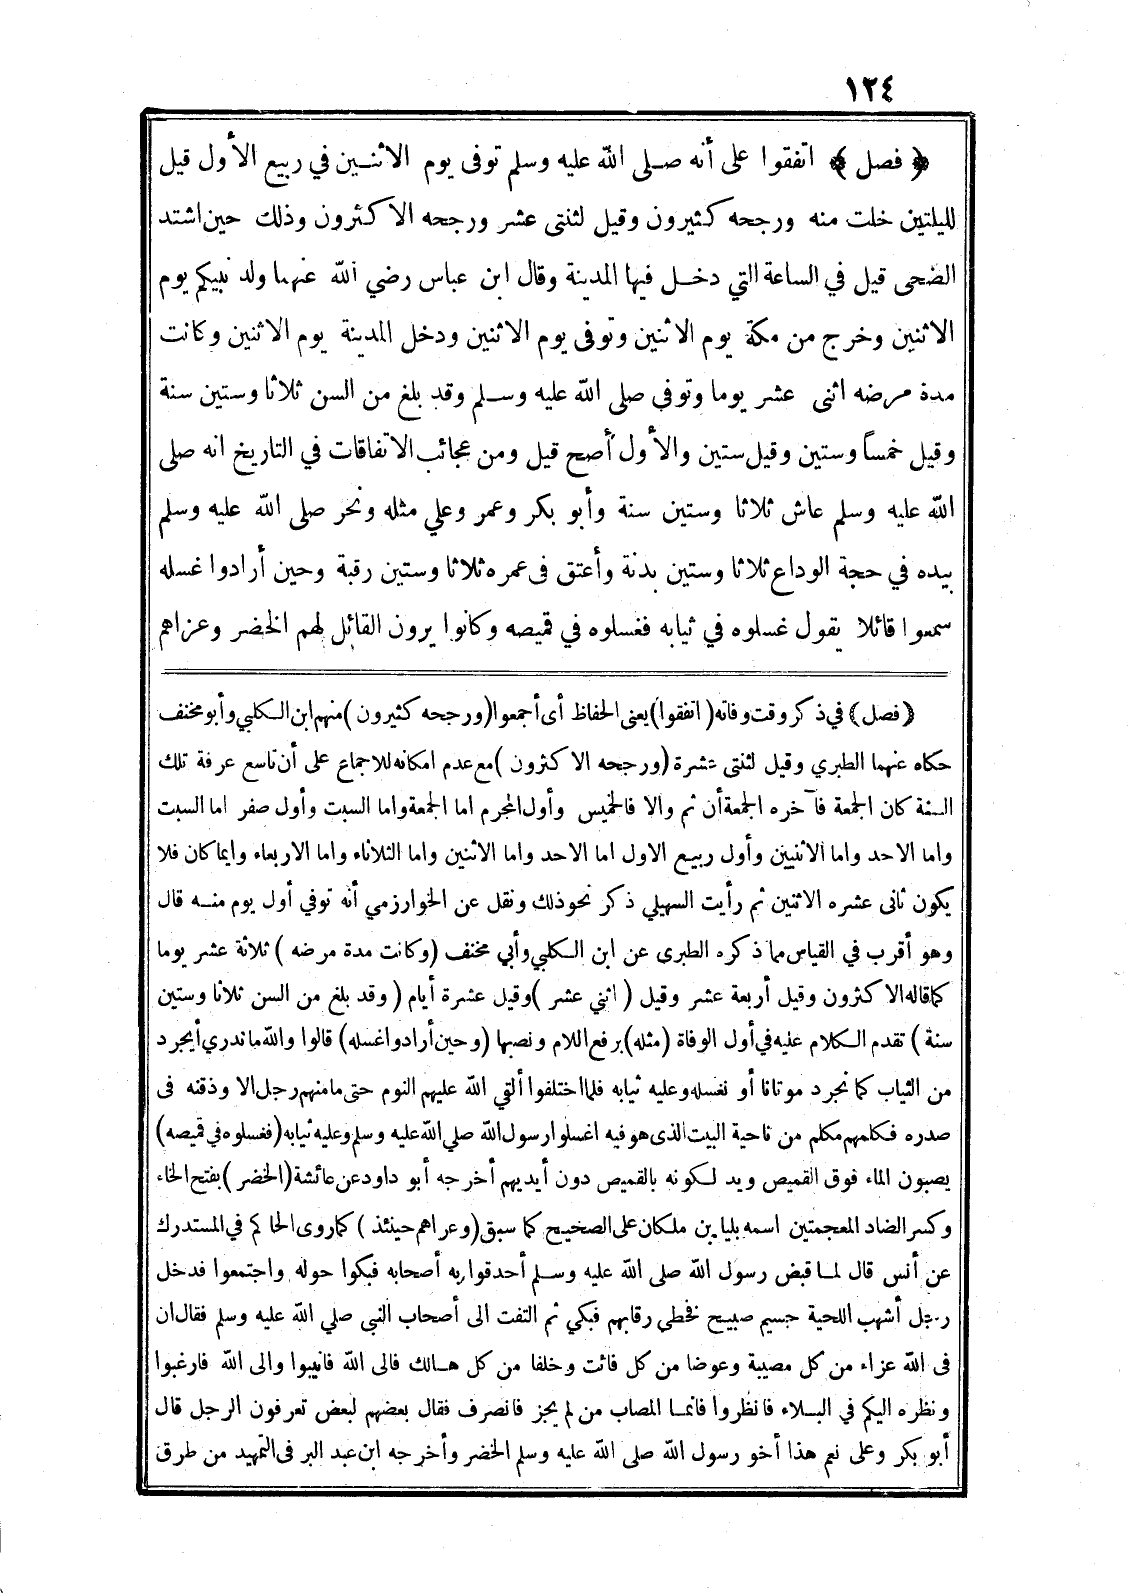 ١٢٤
﴿ فصل ﴾ اتفقوا على أنه صلى الله عليه وسلم توفى يوم الاثنين في ربيع الأول قيل
لليلتين خلت منه ورجحه كثيرون وقيل لثنتى عشر ورجحه الاكثرون وذلك حين اشتد
الضحى قيل في الساعة التي دخل فيها المدينة وقال ابن عباس رضي الله عنهما ولد نبيكم يوم
الاثنين وخرج من مكة يوم الاثنين وتوفى يوم الاثنين ودخل المدينة يوم الاثنين وكانت
مدة مرضه اثنى عشر يوما وتوفي صلى الله عليه وسلم وقد بلغ من السن ثلاثا وستين سنة
وقيل خمساً وستين وقيل ستين والأول أصح قيل ومن عجائب الاتفاقات في التاريخ انه صلى
الله عليه وسلم عاش ثلاثا وستين سنة وأبو بكر وعمر وعلي مثله ونحر صلى الله عليه وسلم
بيده في حجة الوداع ثلاثا وستين بدنة وأعتق فى عمره ثلاثا وستين رقبة وحين أرادوا غسله
سمعوا قائلا يقول غسلوه في ثيابه فغسلوه في قميصه وكانوا يرون القائل لهم الخضر وعزاهم
﴿ فصل ﴾ في ذكر وقت وفاته ( اتفقوا ) يعنى الحفاظ أى أجمعوا ( ورجحه كثيرون ) منهم ابن الكلبي وأبو مخنف
حكاه عنهما الطبري وقيل لثنتى عشرة ( ورجحه الاكثرون ) مع عدم امكانه للاجماع على أن تاسع عرفة تلك
السنة كان الجمعة فآخره الجمعة أن تم والا فالخميس وأول المحرم اما الجمعة واما السبت وأول صفر اما السبت
واما الاحد واما الاثنين وأول ربيع الاول اما الاحد واما الاثنين واما الثلاثاء واما الاربعاء وايما كان فلا
يكون ثانى عشره الاثنين ثم رأيت السهيلي ذكر نحو ذلك ونقل عن الخوارزمي أنه توفي أول يوم منه قال
وهو أقرب في القياس مما ذكره الطبرى عن ابن الكلبي وأبي مخنف ( وكانت مدة مرضه ) ثلاثة عشر يوما
كما قاله الاكثرون وقيل أربعة عشر وقيل ( اثني عشر ) وقيل عشرة أيام ( وقد بلغ من السن ثلاثا وستين
سنة ) تقدم الكلام عليه في أول الوفاة ( مثله ) برفع اللام ونصبها ( وحين أرادوا غسله ) قالوا والله ما ندري أيجرد
من الثياب كما نجرد موتانا أو نغسله وعليه ثيابه فلما اختلفوا ألقي الله عليهم النوم حتى ما منهم رجل الا وذقنه فى
صدره فكلمهم مكلم من ناحية البيت الذى هو فيه اغسلوا رسول الله صلي الله عليه وسلم وعليه ثيابه ( فغسلوه في قميصه )
يصبون الماء فوق القميص ويدلكونه بالقميص دون أيديهم أخرجه أبو داود عن عائشة ( الخضر ) بفتح الخاء
وكسر الضاد المعجمتين اسمه بليا بن ملكان على الصحيح كما سبق ( وعزاهم حينئذ ) كما روى الحاكم في المستدرك
عن أنس قال لما قبض رسول الله صلى الله عليه وسلم أحدقوا به أصحابه فبكوا حوله واجتمعوا فدخل
رجل أشهب اللحية جسيم صبيح فخطي رقابهم فبكي ثم التفت الى أصحاب النبي صلي الله عليه وسلم فقال ان
فى الله عزاء من كل مصيبة وعوضا من كل فائت وخلفا من كل هالك فالى الله فانيبوا والى الله فارغبوا
ونظره اليكم في البلاء فانظروا فانما المصاب من لم يجز فانصرف فقال بعضهم لبعض تعرفون الرجل قال
أبو بكر وعلى نعم هذا أخو رسول الله صلى الله عليه وسلم الخضر وأخرجه ابن عبد البر فى التمهيد من طرق